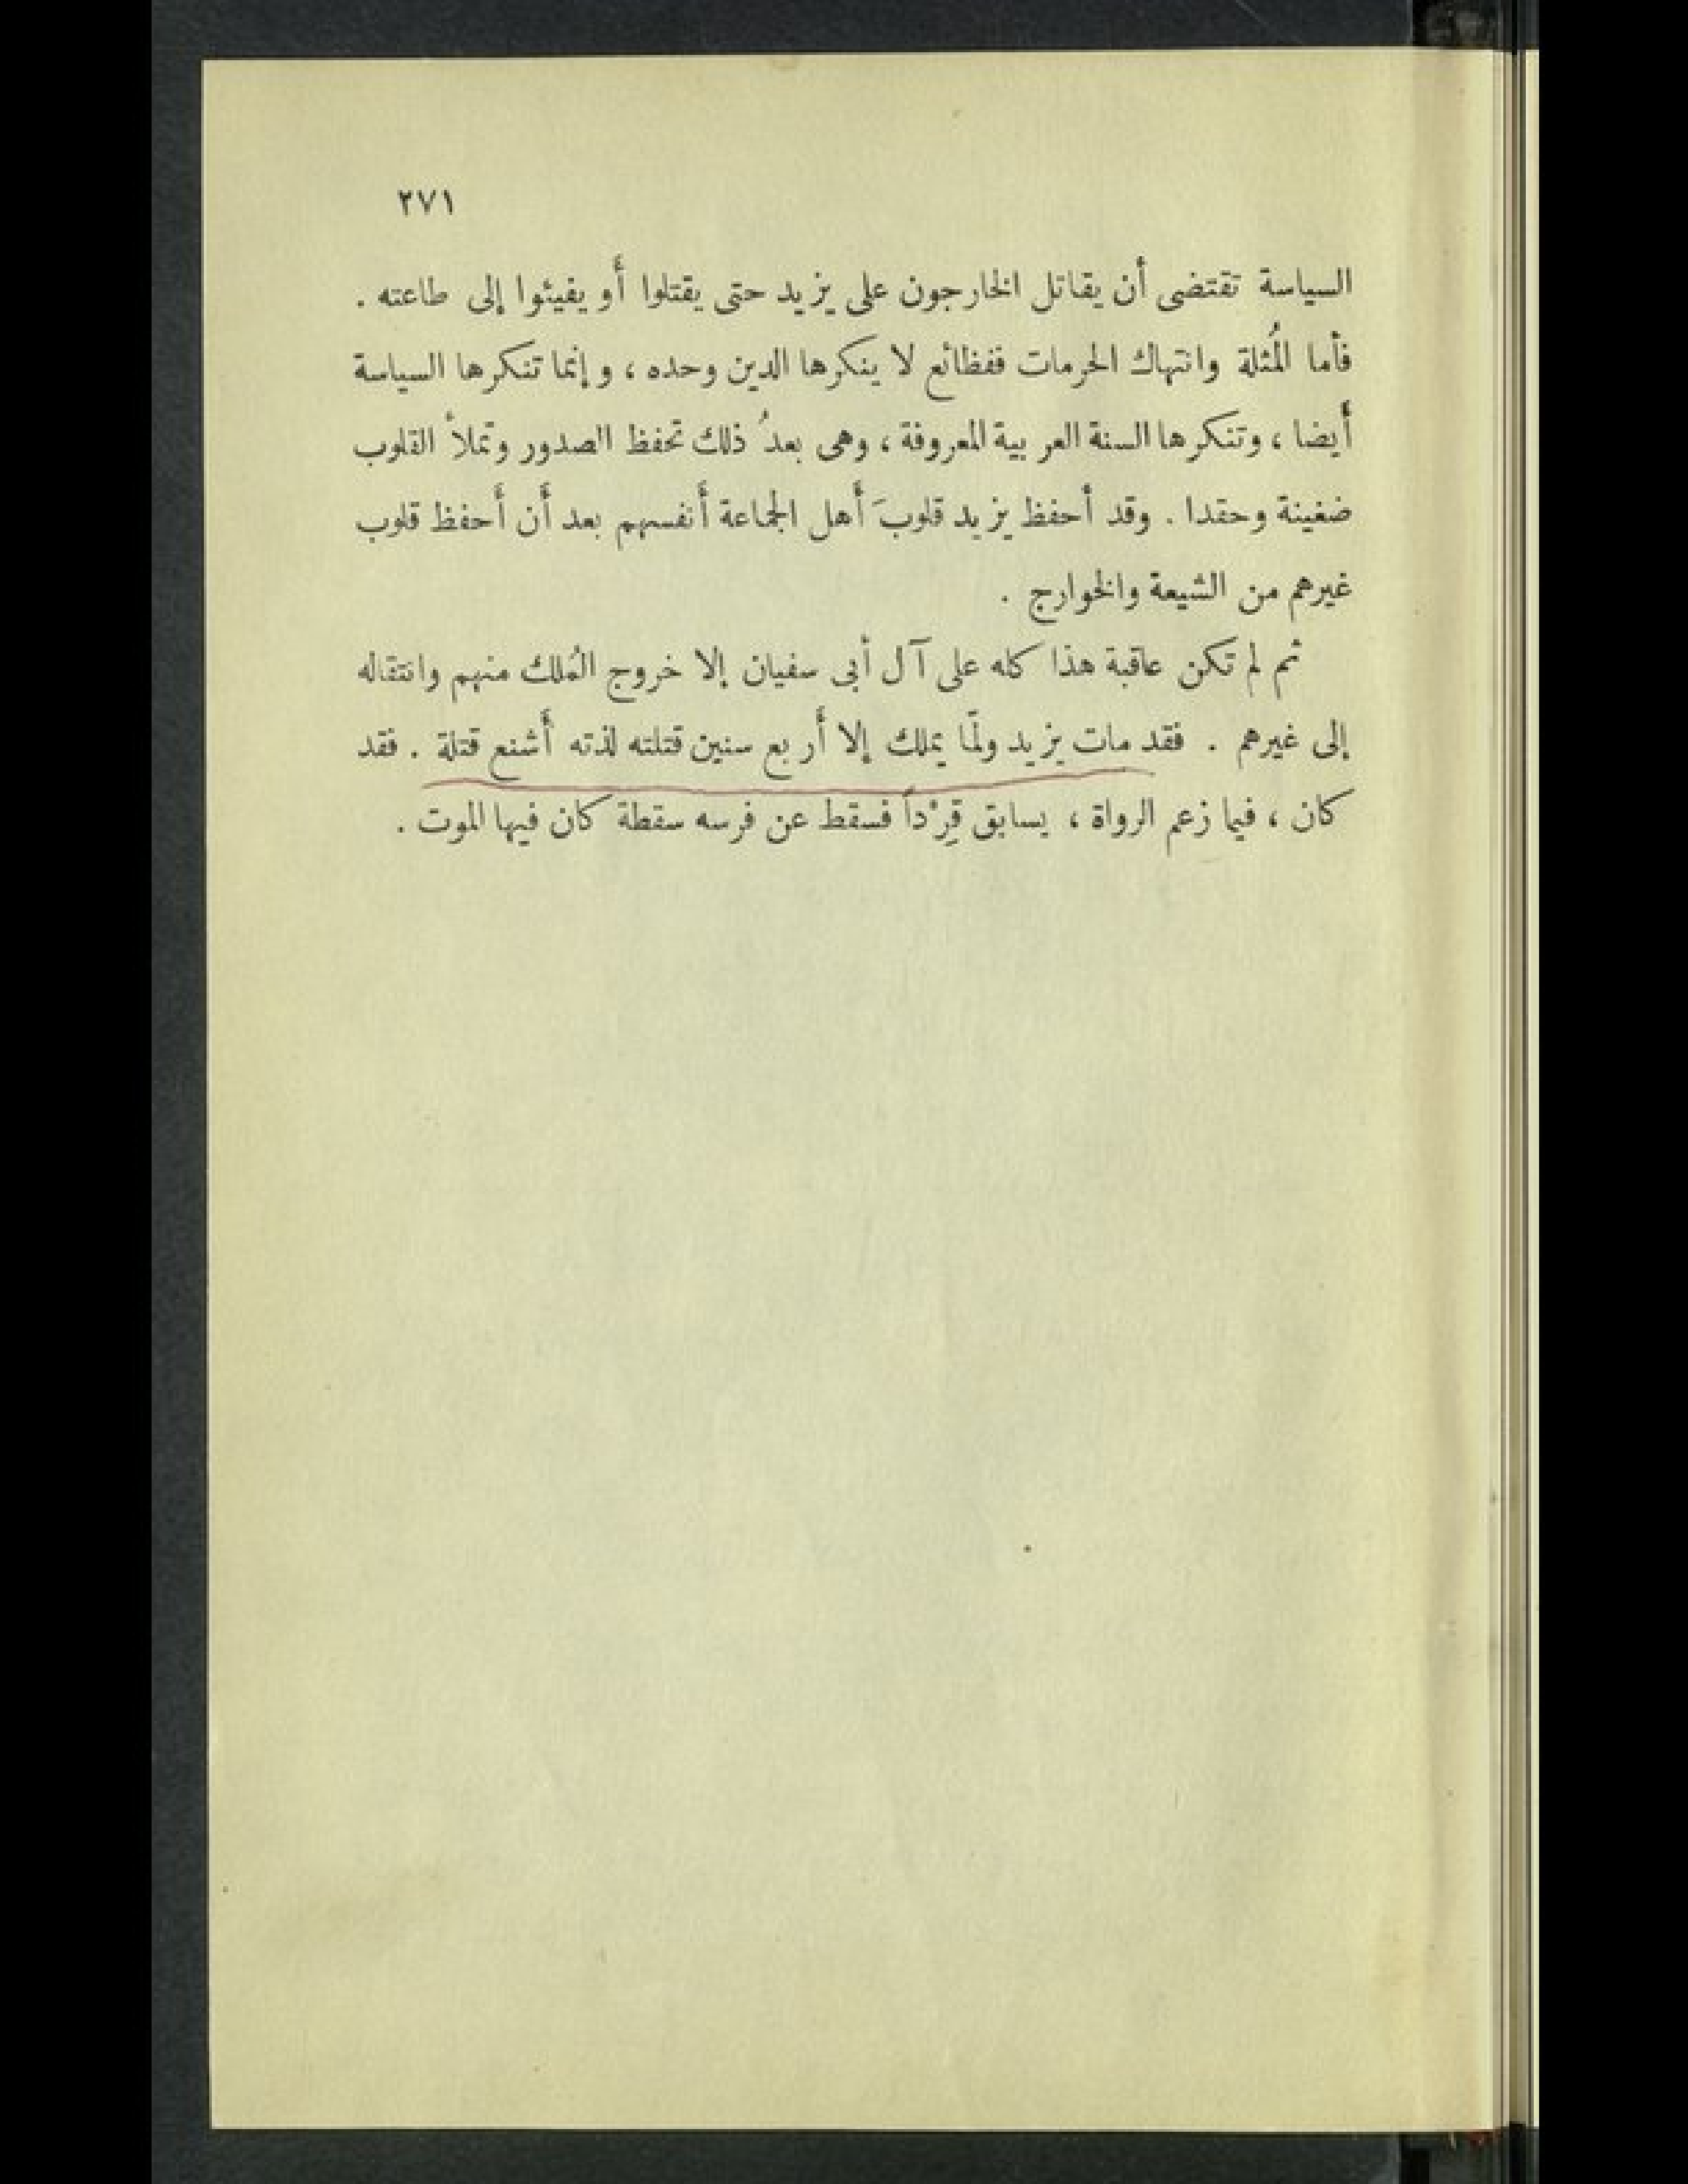 ٢٧١
السياسة تقتضى أن يقاتل الخارجون على يزيد حتى يقتلوا أَو يفيئوا إلى طاعته .
فأما المُثلة وانتهاك الحرمات ففظائع لا ينكرها الدين وحده ، وإنما تنكرها السياسة
أَيضا ، وتنكرها السنة العربية المعروفة ، وهى بعدُ ذلك تحفظ الصدور وتملأ القلوب
ضغينة وحقدا . وقد أحفظ يزيد قلوبَ أَهل الجماعة أَنفسهم بعد أَن أَحفظ قلوب
غيرهم من الشيعة والخوارج .
ثم لم تكن عاقبة هذا كله على آل أبى سفيان إلا خروج المُلك منهم وانتقاله
إلى غيرهم . فقد مات يزيد ولمّا يملك إلا أَربع سنين قتلته لذته أَشنع قتلة . فقد
كان ، فيما زعم الرواة ، يسابق قِرْداً فسقط عن فرسه سقطة كان فيها الموت .